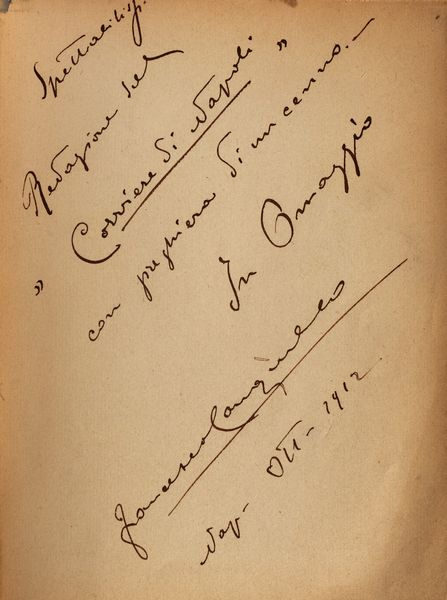 Spettabiliss.
Redazione del
" Corriere di Napoli "
con preghiera di un cenno. —
In Omaggio
Francesco Cangiullo
Nap. Ott - 1912